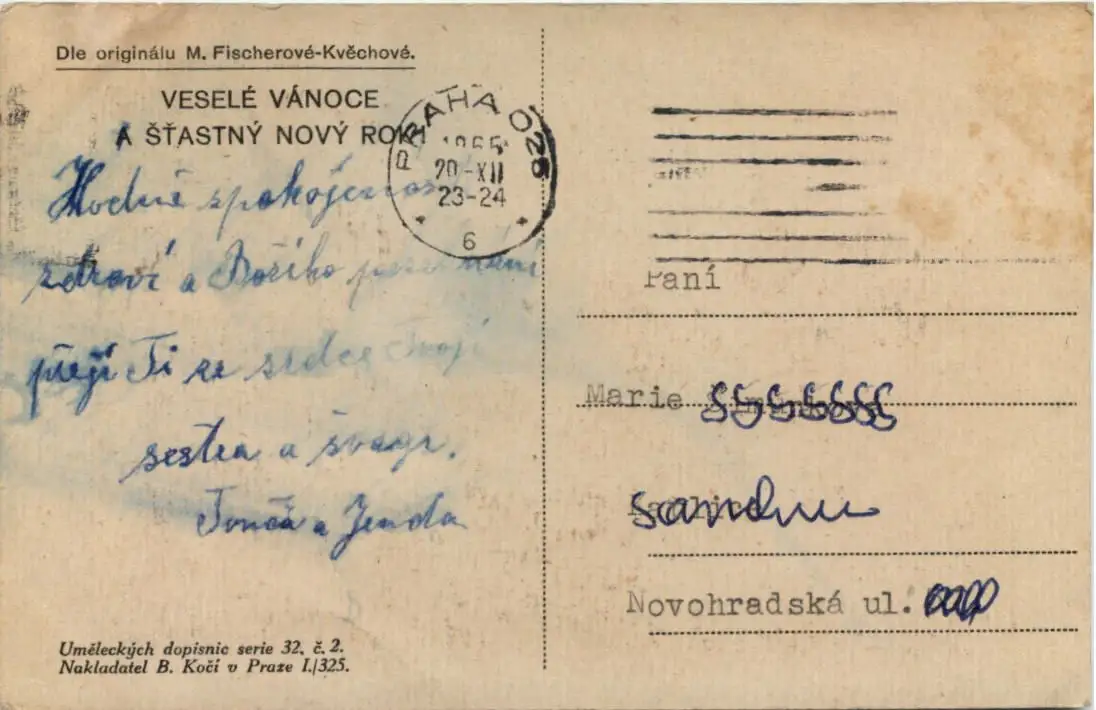 Dle originálu M. Fischerové-Kvěchové.
VESELÉ VÁNOCE
A ŠŤASTNÝ NOVÝ ROK!
PRAHA 025
1965
20-XII
23-24
6
Hodně
zdraví a Božího
přejí Ti ze srdce Tvoji
sestra a švagr.
Tonča a Jenda
Umĕleckých dopisnic serie 32, č. 2.
Nakladatel B. Kočí v Praze I./325.
Paní
Marie
Novohradská ul.